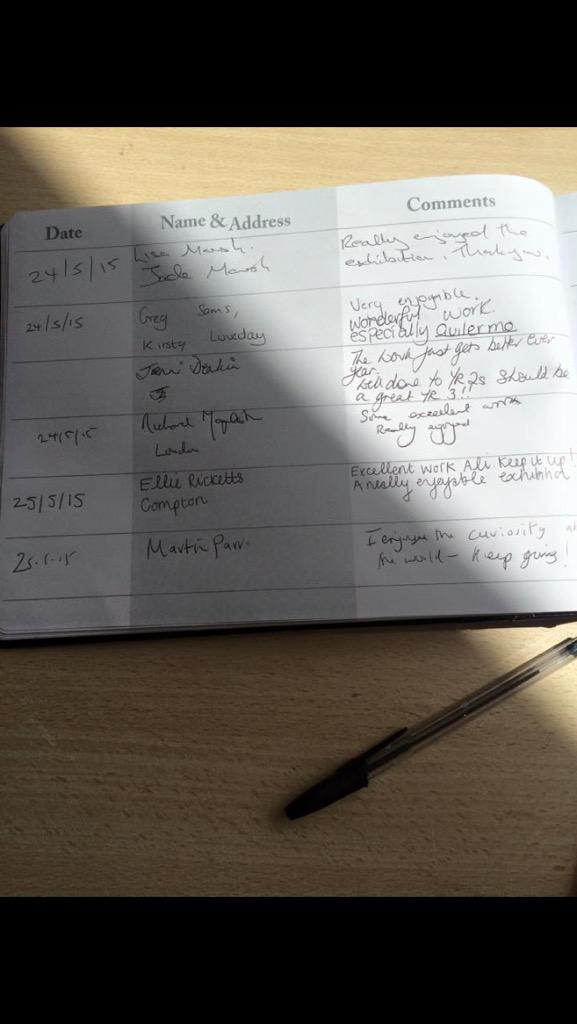 Date Name & Address Comments
24/5/15 Lisa Marsh. Really enjoyed the
Jade Marsh exhibition. Thankyou.
24/5/15 Greg Sams, Very enjoyable.
Kirsty Loveday wonderful work
especially Quilermo
The work just gets better every
year.
Well done to Yr 2s should be
a great Yr 3!!
24/5/15 Richard
London
Some excellent works
Really enjoyed
25/5/15 Ellie Ricketts Excellent work Ali. Keep it up!
Compton A really enjoyable exhibition
25.5.15 Martin Parr. I enjoyed the curiosity
the world - keep going!